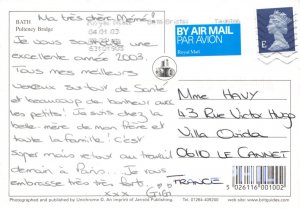 BATH
Pulteney Bridge
Ma très chère Mémé!
Je vous souhaite une
excellente année 2003.
Tous mes meilleurs
vœux surtout de Santé
et beaucoup de bonheur avec
les petits! Je suis chez la
belle-mère de mon frère et
toute la famille! C'est
super mais retour au travail
demain à Paris... Je vous
embrasse très très fort.
xxx Gigi
BY AIR MAIL
PAR AVION
Royal Mail
E
04.01.03
Mme HAVY
43 Rue Victor Hugo
Villa Ouida
06110 LE CANNET
FRANCE
Published & printed by Unichrome ©. An imprint of Jarrold Publishing.
Tel: 01264 409200
web site: www.britguides.com
5 026116 001002